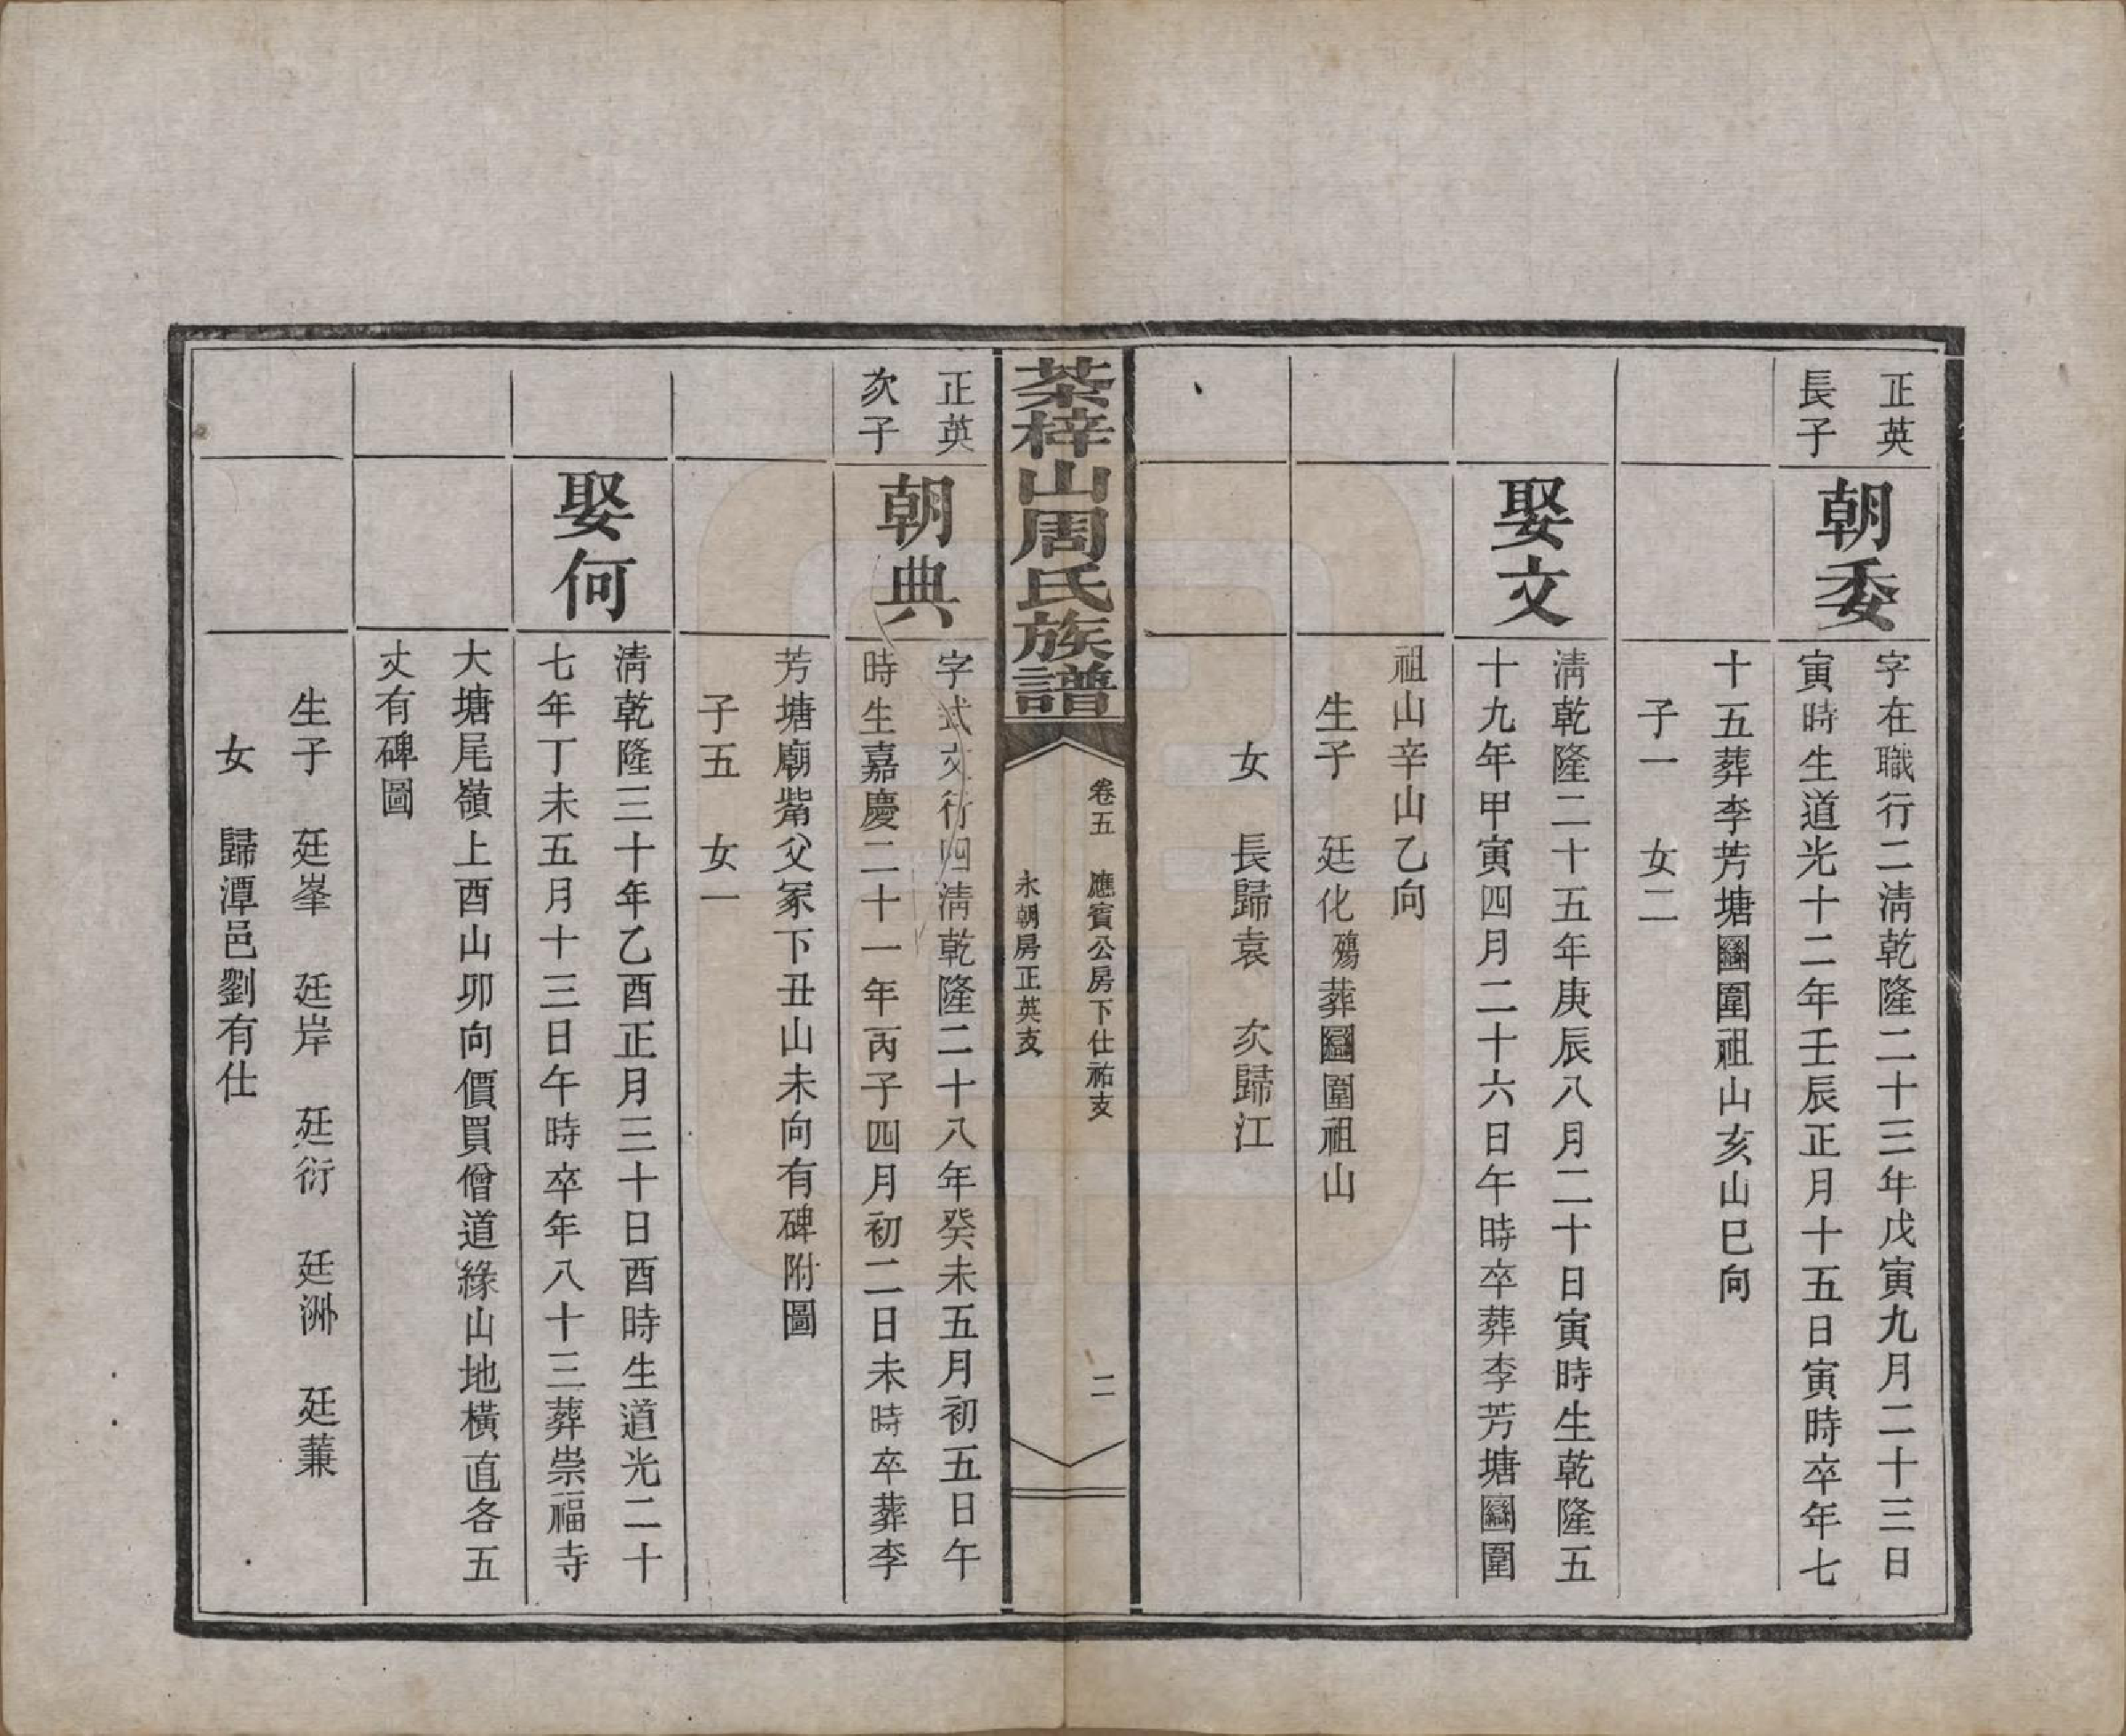 正英
長子
朝委
字在職行二淸乾隆二十三年戊寅九月二十三日
寅時生道光十二年壬辰正月十五日寅時卒年七
十五葬李芳塘圞圍祖山亥山巳向
子一　女二
娶文
淸乾隆二十五年庚辰八月二十日寅時生乾隆五
十九年甲寅四月二十六日午時卒葬李芳塘圞圍
祖山辛山乙向
生子　廷化殤葬圞圍祖山
女　長歸袁　次歸江
茶梓山周氏族譜
卷五　應賓公房下仕祐支
永朝房正英支
二
正英
次子
朝典
字式文行四淸乾隆二十八年癸未五月初五日午
時生嘉慶二十一年丙子四月初二日未時卒葬李
芳塘廟觜父冢下丑山未向有碑附圖
子五　女一
娶何
淸乾隆三十年乙酉正月三十日酉時生道光二十
七年丁未五月十三日午時卒年八十三葬崇福寺
大塘尾嶺上酉山卯向價買僧道緣山地橫直各五
丈有碑圖
生子　廷峯　廷岸　廷衍　廷洲　廷蒹
女　歸潭邑劉有仕